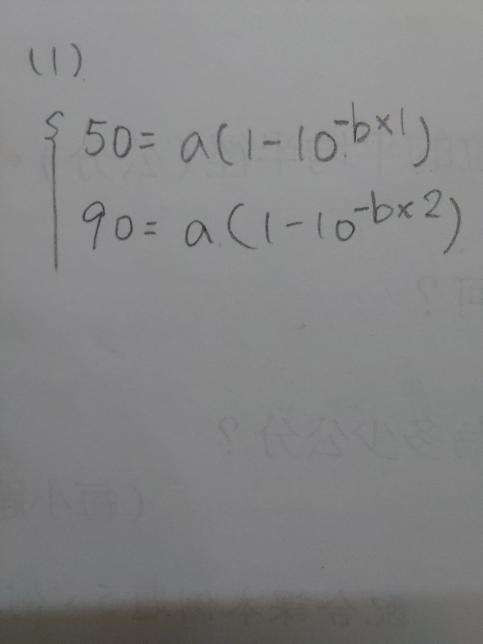 (1)
50 = a(1-10^{-b×1})
90 = a(1-10^{-b×2})